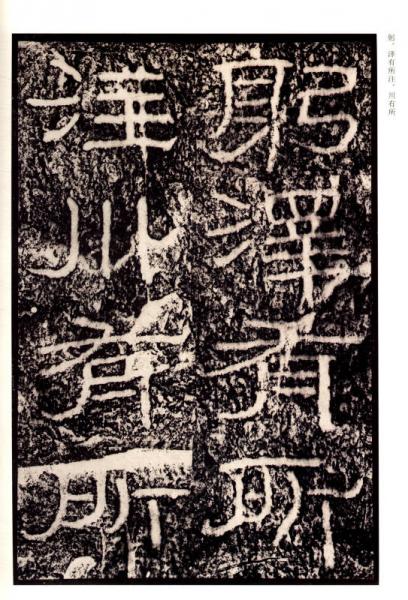 躬，泽有所注，川有所
躬澤有所
注川有所